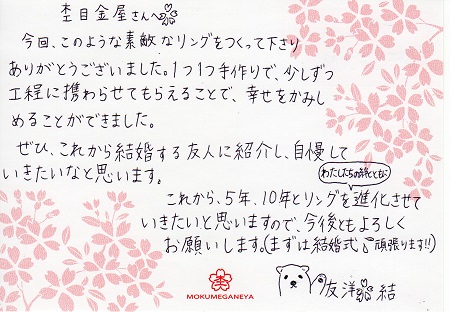 杢目金屋さんへ
今回、このような素敵なリングをつくって下さり
ありがとうございました。1つ1つ手作りで、少しずつ
工程に携わらせてもらえることで、幸せをかみし
めることができました。
ぜひ、これから結婚する友人に紹介し、自慢して
いきたいなと思います。
わたしたちの絆とともに
これから、5年、10年とリングを進化させて
いきたいと思いますので、今後ともよろしく
お願いします。(まずは結婚式♪頑張ります!!)
友洋 結
MOKUMEGANEYA